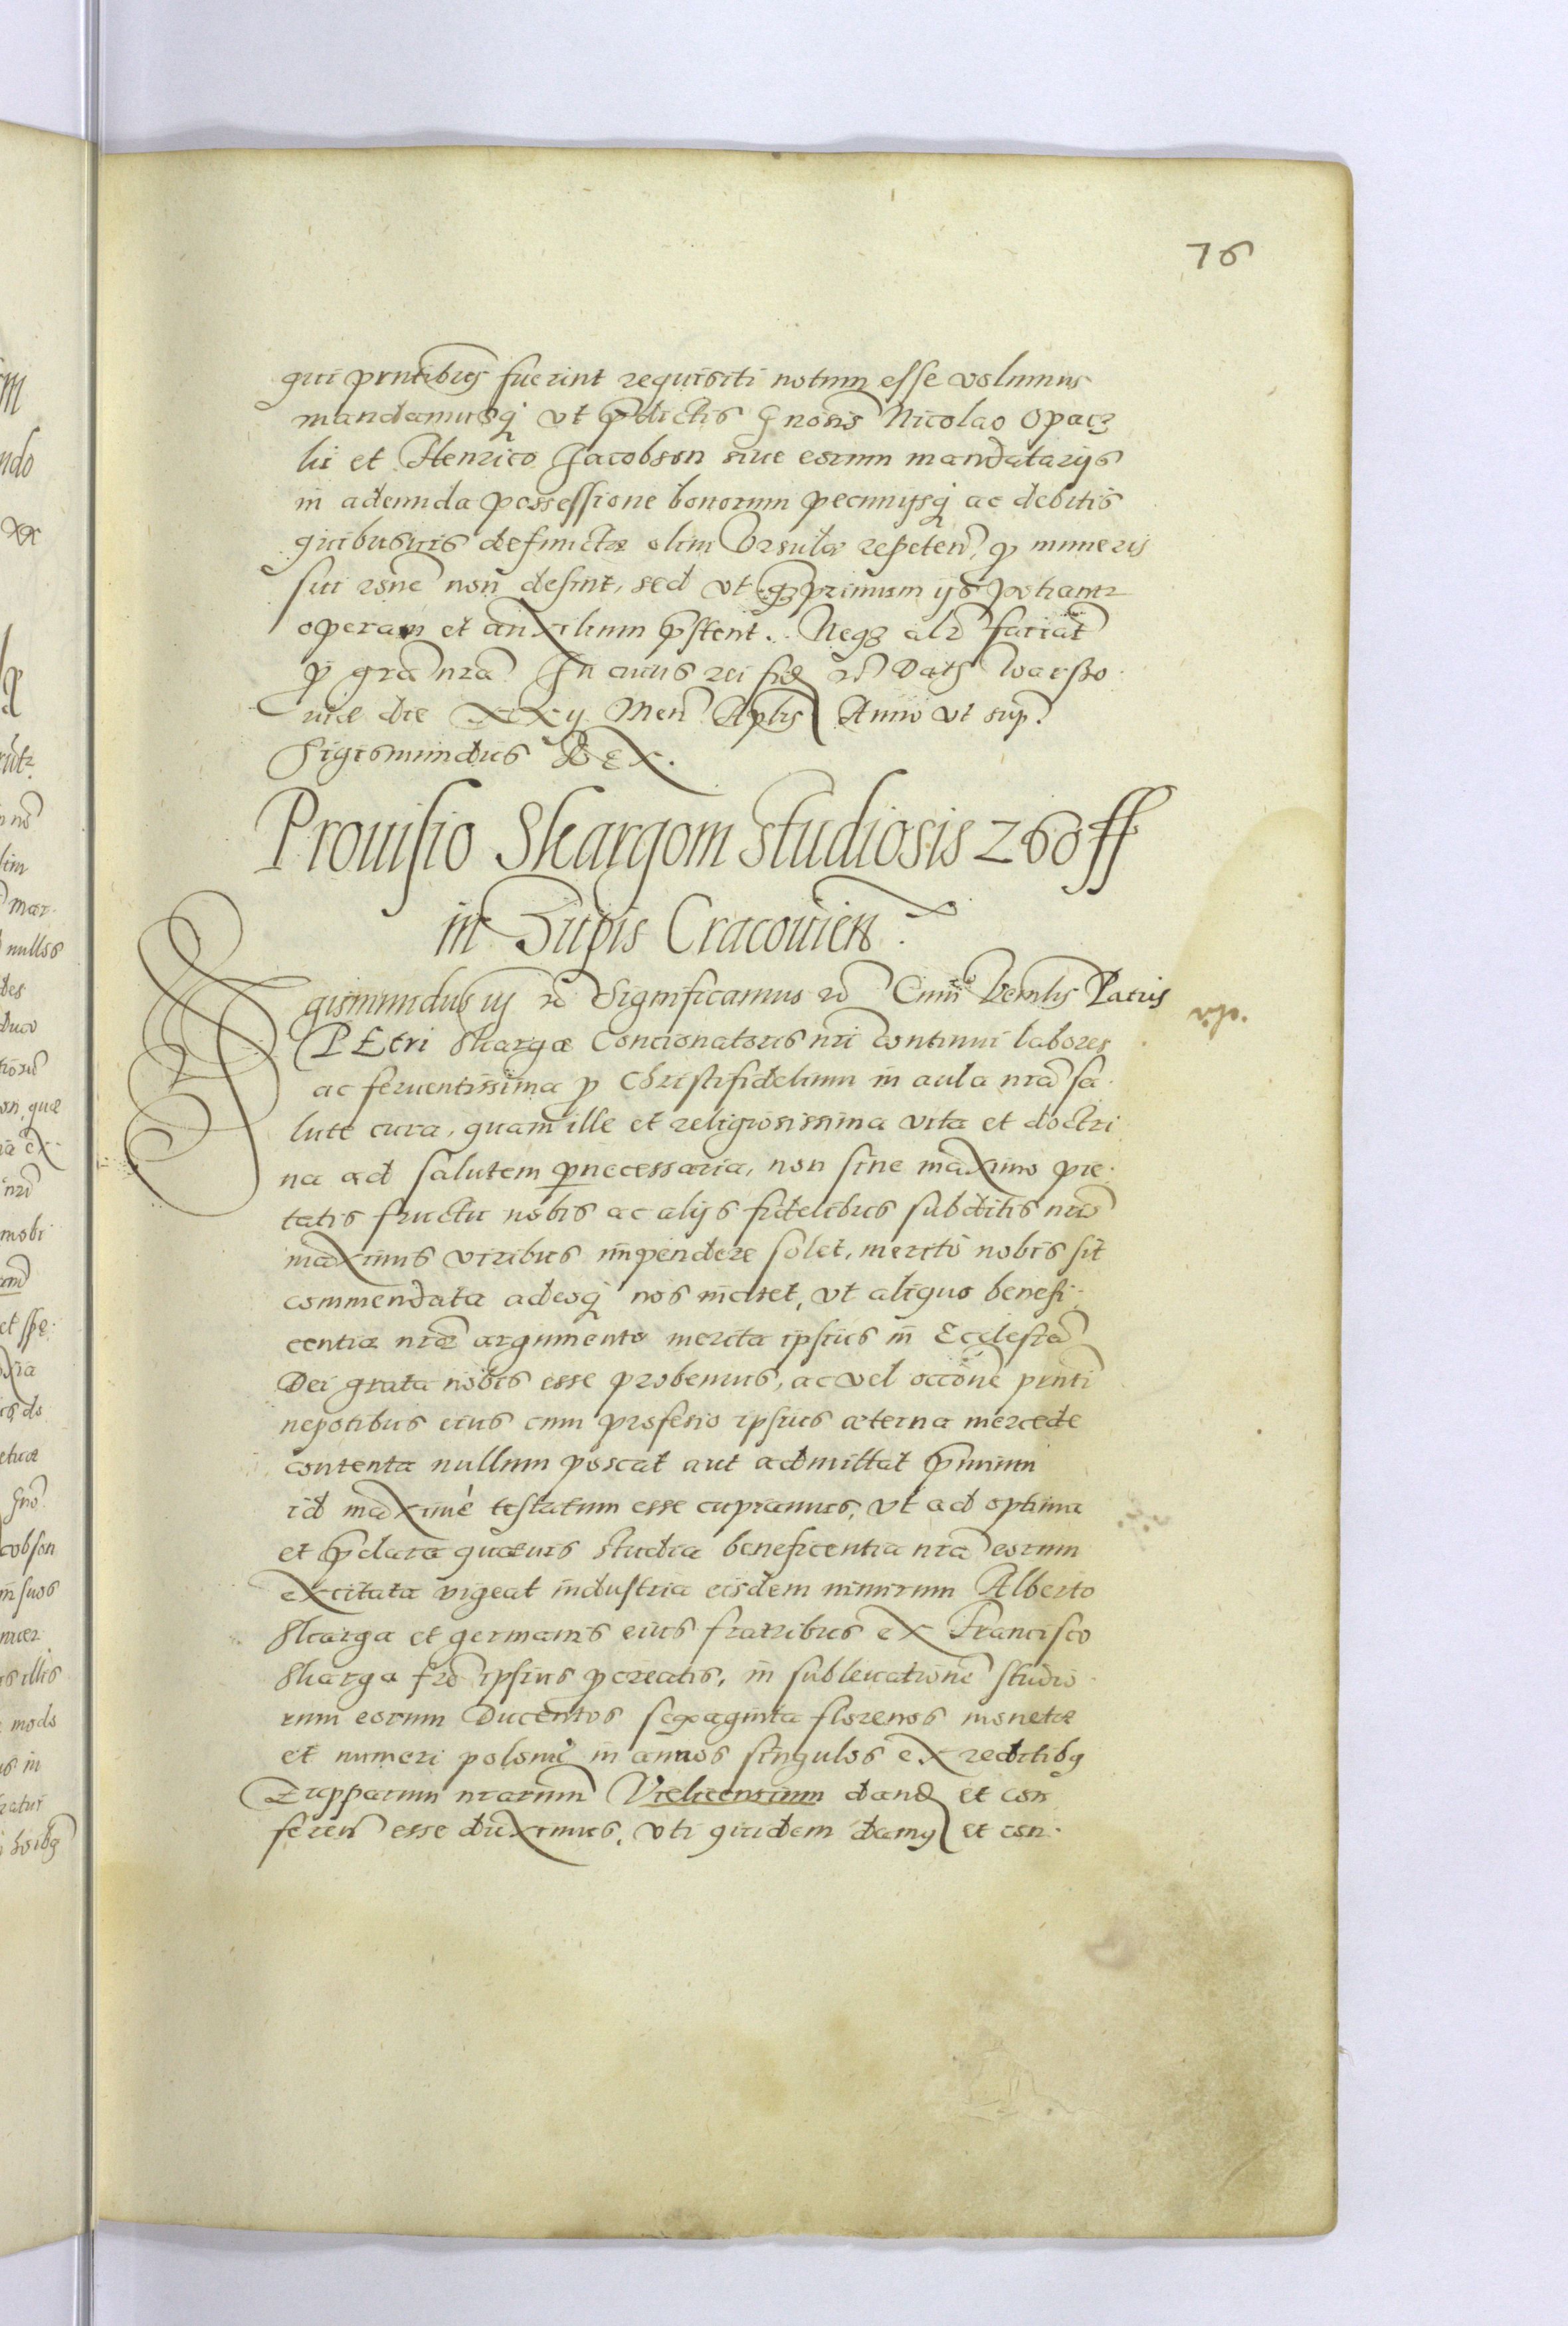 76
qui prntibus fuerint requisiti notum esse volumus
mandamusq ut pdictis Gnosis Nicolao Opacz
ki et Henrico Jacobson siue eorum mandatarijs
in adeunda possessione bonorum pecunijsq ac debitis
quibusuis defunctæ olim Vrsulæ repeten, p muneris
sui rone non desint, sed vt qprimum ijs potiantr
operam et auxilium pstent. Neqz alr faciat
p gra nra In cuius rei fid rc Dats Warsso
uiæ die XXij Men Aplis Anno vt sup.
Sigismundus Rex.
Prouisio Skargom studiosis 260 ff
in Zupis Cracouien.
Sigismundus iij rc Significamus rc Cum Venlis Patris
PEtri Skargæ Concionatoris nri continui labores
ac feruentissima p Christifidelium in aula nra sa
lute cura, quam ille et religiosissima vita et doctri
na ad salutem pnecessaria, non sine maximo pie
tatis fructu nobis ac alijs fidelibus subditis nris
maximis viribus impendere solet, merito nobis sit
commendata adeoq nos incitet, vt aliquo benefi
centiæ nræ argumento merita ipsius in Ecclesia
Dei grata nobis esse probemus, ac vel occone prnti
nepotibus eius cum professio ipsius æterna mercede
contenta nullum poscat aut admittat pmium
id maximè testatum esse cupiamus, vt ad optima
et pclara quæuis studia beneficentia nra eorum
excitata vigeat industria eisdem nimirum Alberto
Skarga et germanis eius fratribus ex Francisco
Skarga fre ipsius pcreatis, in subleuatione studio
rum eorum Ducentos sexaginta florenos monetæ
et numeri polonici in annos singulos ex reditibq
Zupparum nrarum Vielicensium dand et con
feren esse duximus, vti quidem damq et con